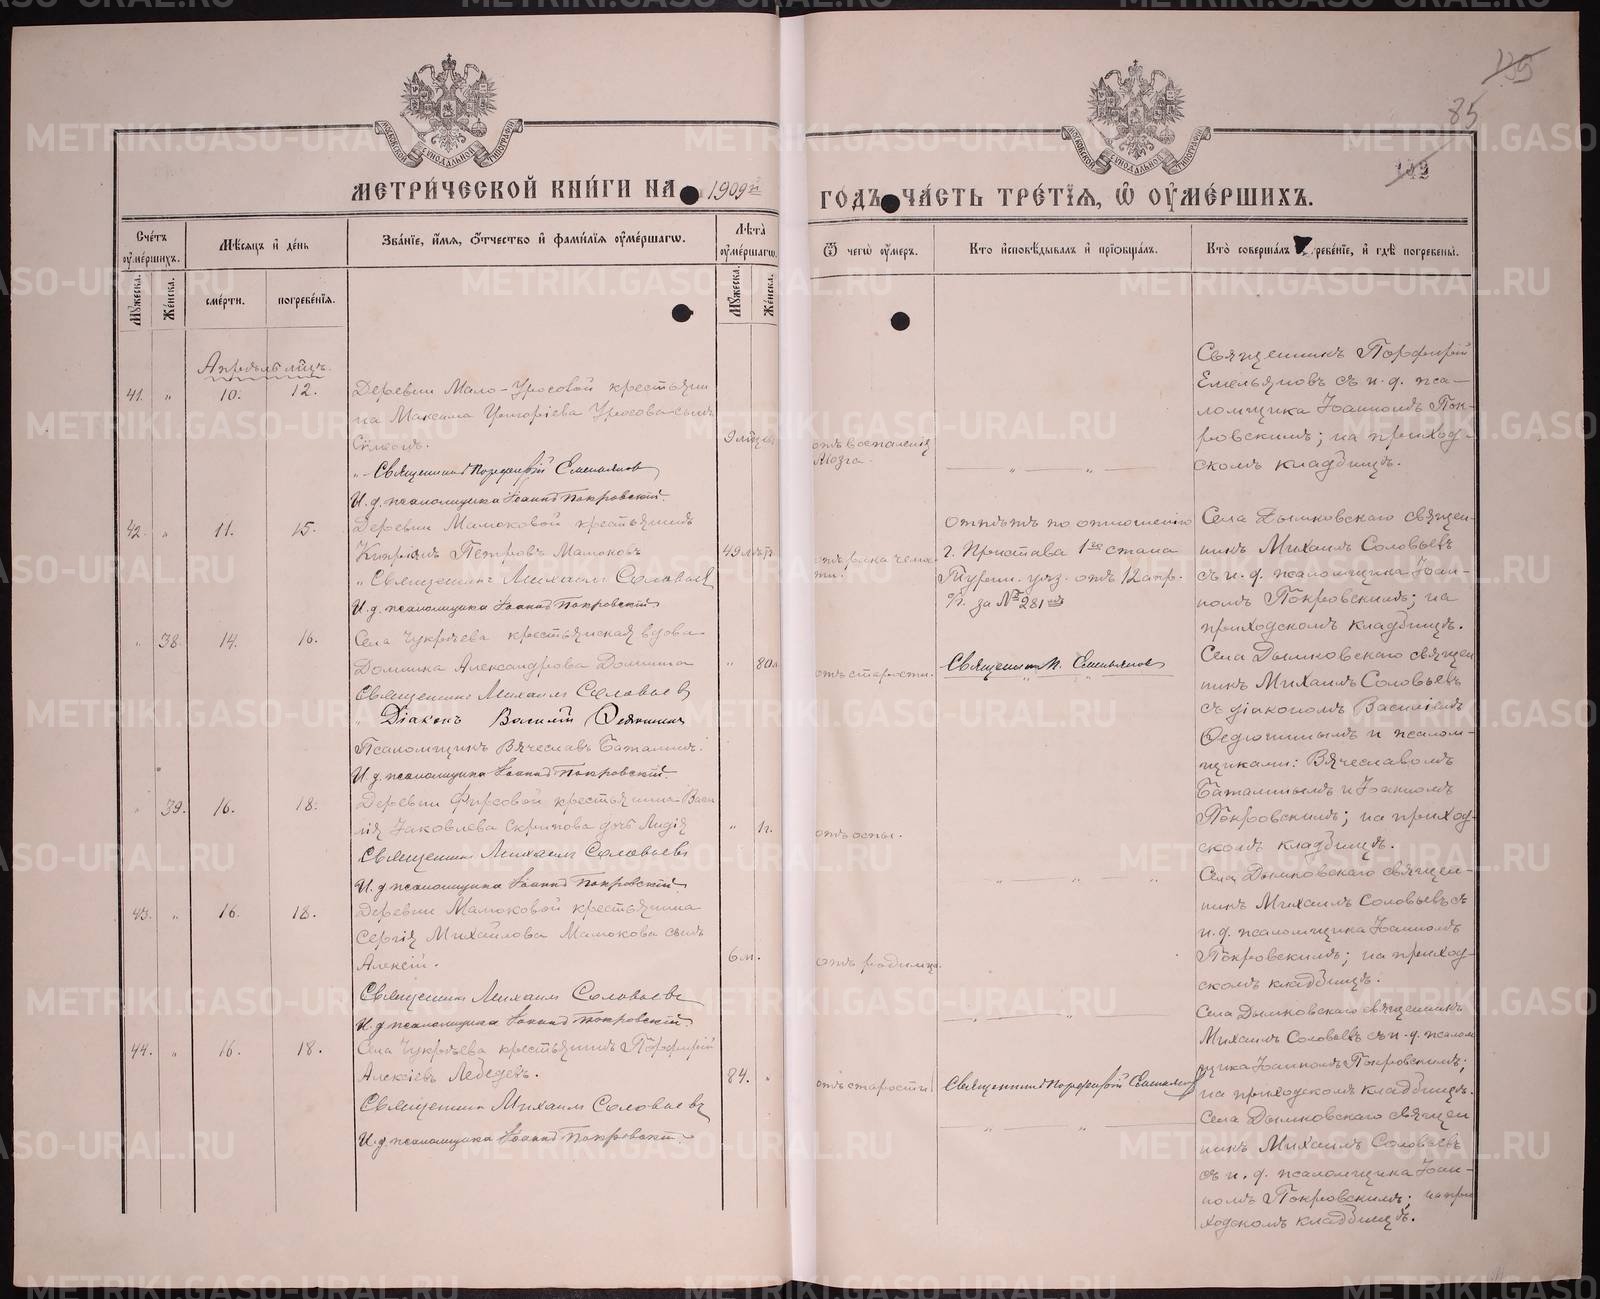 135
85
142
МОСКОВСКОЙ СУНОДАЛЬНОЙ ТИПОГРАФІИ
МОСКОВСКОЙ СУНОДАЛЬНОЙ ТИПОГРАФІИ
МЕТРИ́ЧЕСКОЙ КНИ́ГИ НА 1909й
ГОДЪ ЧА́СТЬ ТРЕ́ТІѦ, Ѿ ОУМЕ́РШИХЪ.
Сче́тъ оуме́ршихъ.
Мꙋ́жеска.
Же́нска.
Мѣ́сяцъ и де́нь
сме́рти.
погребе́нїя.
Зва́нїе, и́мя, о́тчество и фами́лїя оуме́ршагѡ.
Лѣ́та оуме́ршагѡ.
Мꙋ́жеска.
Же́нска.
Ѿ чегѡ̀ оу́меръ.
Кто̀ исповѣ́дывалъ и прїобща́лъ.
Кто̀ соверша́лъ ребе́нїе, и гдѣ̀ погребены̀.
Апрѣль мѣцъ.
41. " 10. 12.
Деревни Мало-Уросовой крестьяни
на Максима Григоріева Уросова сынъ
Симеонъ.
"Священникъ Порфирій Емельяновъ
И. д. псаломщика Іоаннъ Покровскій.
9 мѣцевъ
отъ воспаленія
Мозга.
" "
Священникъ Порфирій
Емельяновъ съ и. д. пса-
ломщика Іоанномъ Пок-
ровскимъ; на приход-
скомъ кладбищѣ.
42. " 11. 15.
Деревни Мамоковой крестьянинъ
Кипріянъ Петровъ Мамоковъ
"Священникъ Михаилъ Соловьевъ
И. д. псаломщика Іоаннъ Покровскій
49 лѣтъ
отъ рака
отпѣтъ по отношенію
г. Пристава 1го стана
Турин. уѣз. отъ 12 апр.
с/г. за № 281
Села Дымковскаго священ-
никъ Михаилъ Соловьевъ
съ и. д. псаломщика Іоан-
номъ Покровскимъ; на
приходскомъ кладбищѣ.
" 38. 14. 16.
Села Чукреева крестьянская вдова
Домника Александрова
Священникъ Михаилъ Соловьевъ
"Діаконъ Василій Ѳедюшинъ
Псаломщикъ Вячеславъ Баталинъ.
И. д. псаломщика Іоаннъ Покровскій.
" 80
отъ старости.
Священникъ П. Емельяновъ
Села Дымковскаго священ
никъ Михаилъ Соловьевъ
съ діакономъ Василіемъ
Ѳедюшинымъ и псалом-
щиками: Вячеславомъ
Баталинымъ и Іоанномъ
Покровскимъ; на приход-
скомъ кладбищѣ.
" 39. 16. 18.
Деревни Фирсовой крестьянина Васи
лія Іаковлева Скрипова дочь Лидія
Священникъ Михаилъ Соловьевъ
И. д. псаломщика Іоаннъ Покровскій.
" 1г.
отъ оспы.
" " "
Села Дымковскаго священ-
никъ Михаилъ Соловьевъ съ
и. д. псаломщика Іоанномъ
Покровскимъ; на приход-
скомъ кладбищѣ.
43. " 16. 18.
Деревни Мамоковой крестьянина
Сергія Михайлова Мамокова сынъ
Алексій.
Священникъ Михаилъ Соловьевъ
И. д. псаломщика Іоаннъ Покровскій.
6 м.
отъ родимца.
" "
Села Дымковскаго священникъ
Михаилъ Соловьевъ съ и. д. псалом
щика Іоанномъ Покровскимъ;
на приходскомъ кладбищѣ.
44. " 16. 18.
Села Чукреева крестьянинъ Порфирій
Алексіевъ Лебедевъ.
Священникъ Михаилъ Соловьевъ
И. д. псаломщика Іоаннъ Покровскій.
84. "
отъ старости.
Священникъ Порфирій Емельяновъ
" "
Села Дымковскаго священ
никъ Михаилъ Соловьевъ
съ и. д. псаломщика Іоан-
номъ Покровскимъ; на при
ходскомъ кладбищѣ.
METRIKI.GASO-URAL.RU